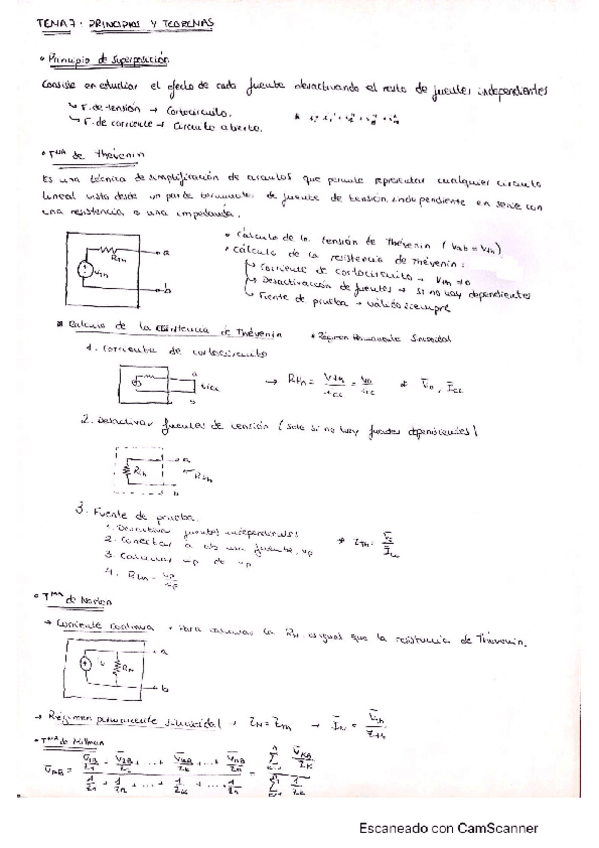 TEMA 7. PRINCIPIOS Y TEOREMAS
• Principio de Superposición
Consiste en estudiar el efecto de cada fuente desactivando el resto de fuentes independientes
↳ F. de tensión → Cortocircuito.
↳ F. de corriente → Circuito abierto.
• Tma de Thévenin
Es una técnica de simplificación de circuitos que permite representar cualquier circuito
lineal visto desde un par de terminales de fuente de tensión independiente en serie con
una resistencia o una impedancia.
• Cálculo de la tensión de Thévenin (Vab = Vth)
• Cálculo de la resistencia de Thévenin:
↳ Corriente de cortocircuito → Vth ≠ 0
↳ Desactivación de fuentes → si no hay dependientes
↳ Fuente de prueba → válido siempre
Rth
Vth
a
b
Calculo de la resistencia de Thévenin
Régimen Permanente Sinusoidal
1. Corriente de cortocircuito
a
icc
b
2. Desactivar fuentes de tensión (solo si no hay fuentes dependientes)
Rth
a
Rth
b
3. Fuente de prueba.
1. Desactivar fuentes independientes
2. Conectar a ab una fuente, up
3. Calcular
4. Rth =
• Tma de Norton
→ Corriente continua • Para calcular la RN es igual que la resistencia de Thévenin.
a
RN
b
→ Régimen permanente sinusoidal → ZN = Zth →
• Tma de Millman